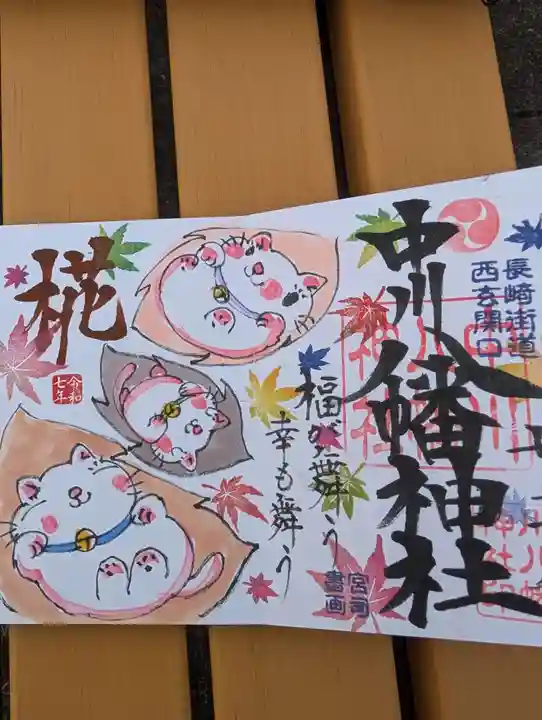 長崎街道
西玄関口
中川八幡神社
宮司
書画
福が舞う
幸も舞う
椛
令和
七年